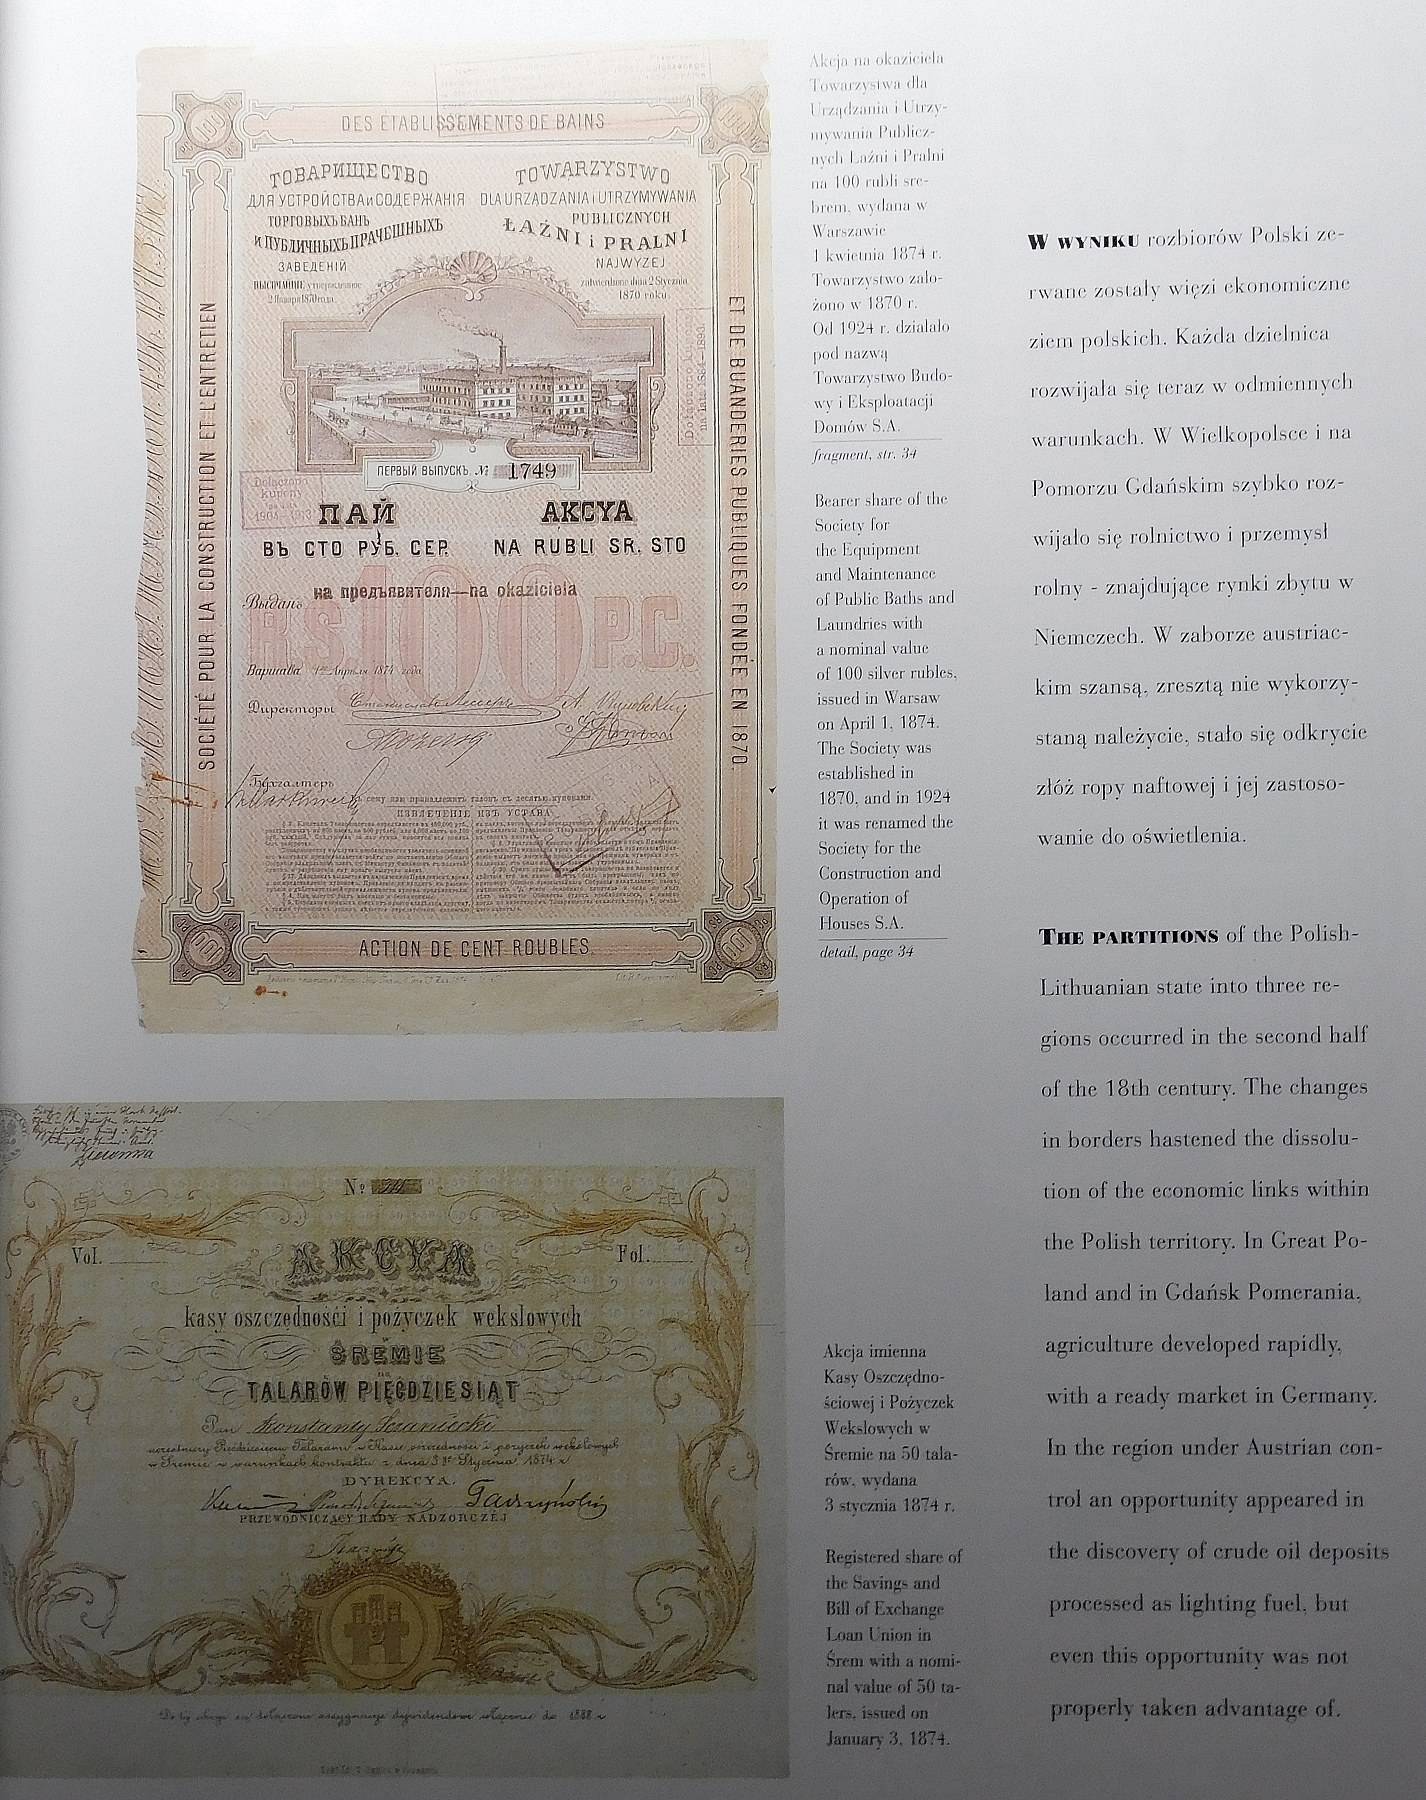 DES ETABLISSEMENTS DE BAINS
SOCIÉTÉ POUR LA CONSTRUCTION ET L'ENTRETIEN
ET DE BUANDERIES PUBLIQUES FONDÉE EN 1870.
ТОВАРИЩЕСТВО
ДЛЯ УСТРОЙСТВА и СОДЕРЖАНІЯ
ТОРГОВЫХЪ БАНЬ
И ПУБЛИЧНЫХЪ ПРАЧЕШНЫХЪ
ЗАВЕДЕНІЙ
ВЫСОЧАЙШЕ утвержденное
2 Января 1870 года.
TOWARZYSTWO
DLA URZĄDZANIA i UTRZYMYWANIA
PUBLICZNYCH
ŁAŹNI i PRALNI
NAJWYZEJ
zatwierdzone dnia 2 Stycznia
1870 roku.
ПЕРВЫЙ ВЫПУСКЪ, № 1749
Dołączono
kupony
ПАЙ
AKCYA
ВЪ СТО РУБ. СЕР.
NA RUBLI SR. STO
на предъявителя—na okaziciela
Выданъ
RS. 100 Р.С.
Варшава 1го Апрѣля 1874 года
Директоры
Бухгалтеръ
ИЗВЛЕЧЕНІЕ ИЗЪ УСТАВА
ACTION DE CENT ROUBLES.
Akcja na okaziciela
Towarzystwa dla
Urządzania i Utrzy-
mywania Publicz-
nych Łaźni i Pralni
na 100 rubli sre-
brem, wydana w
Warszawie
1 kwietnia 1874 r.
Towarzystwo zało-
żono w 1870 r.
Od 1924 r. działało
pod nazwą
Towarzystwo Budo-
wy i Eksploatacji
Domów S.A.
fragment, str. 34
Bearer share of the
Society for
the Equipment
and Maintenance
of Public Baths and
Laundries with
a nominal value
of 100 silver rubles,
issued in Warsaw
on April 1, 1874.
The Society was
established in
1870, and in 1924
it was renamed the
Society for the
Construction and
Operation of
Houses S.A.
detail, page 34
W WYNIKU rozbiorów Polski ze-
rwane zostały więzi ekonomiczne
ziem polskich. Każda dzielnica
rozwijała się teraz w odmiennych
warunkach. W Wielkopolsce i na
Pomorzu Gdańskim szybko roz-
wijało się rolnictwo i przemysł
rolny - znajdujące rynki zbytu w
Niemczech. W zaborze austriac-
kim szansą, zresztą nie wykorzy-
staną należycie, stało się odkrycie
złóż ropy naftowej i jej zastoso-
wanie do oświetlenia.
THE PARTITIONS of the Polish-
Lithuanian state into three re-
gions occurred in the second half
of the 18th century. The changes
in borders hastened the dissolu-
tion of the economic links within
the Polish territory. In Great Po-
land and in Gdańsk Pomerania,
agriculture developed rapidly,
with a ready market in Germany.
In the region under Austrian con-
trol an opportunity appeared in
the discovery of crude oil deposits
processed as lighting fuel, but
even this opportunity was not
properly taken advantage of.
No
Vol.
Fol.
AKCYA
kasy oszczędnośći i pożyczek wekslowych
w
ŚREMIE
na
TALARÓW PIĘĆDZIESIĄT
Pan Konstanty Sczaniecki
w Śremie w warunkach kontraktu z dnia 3go Stycznia 1874 r
DYREKCYA.
PRZEWODNICZĄCY RADY NADZORCZEJ
Akcja imienna
Kasy Oszczędno-
ściowej i Pożyczek
Wekslowych w
Śremie na 50 tala-
rów, wydana
3 stycznia 1874 r.
Registered share of
the Savings and
Bill of Exchange
Loan Union in
Śrem with a nomi-
nal value of 50 ta-
lers, issued on
January 3, 1874.